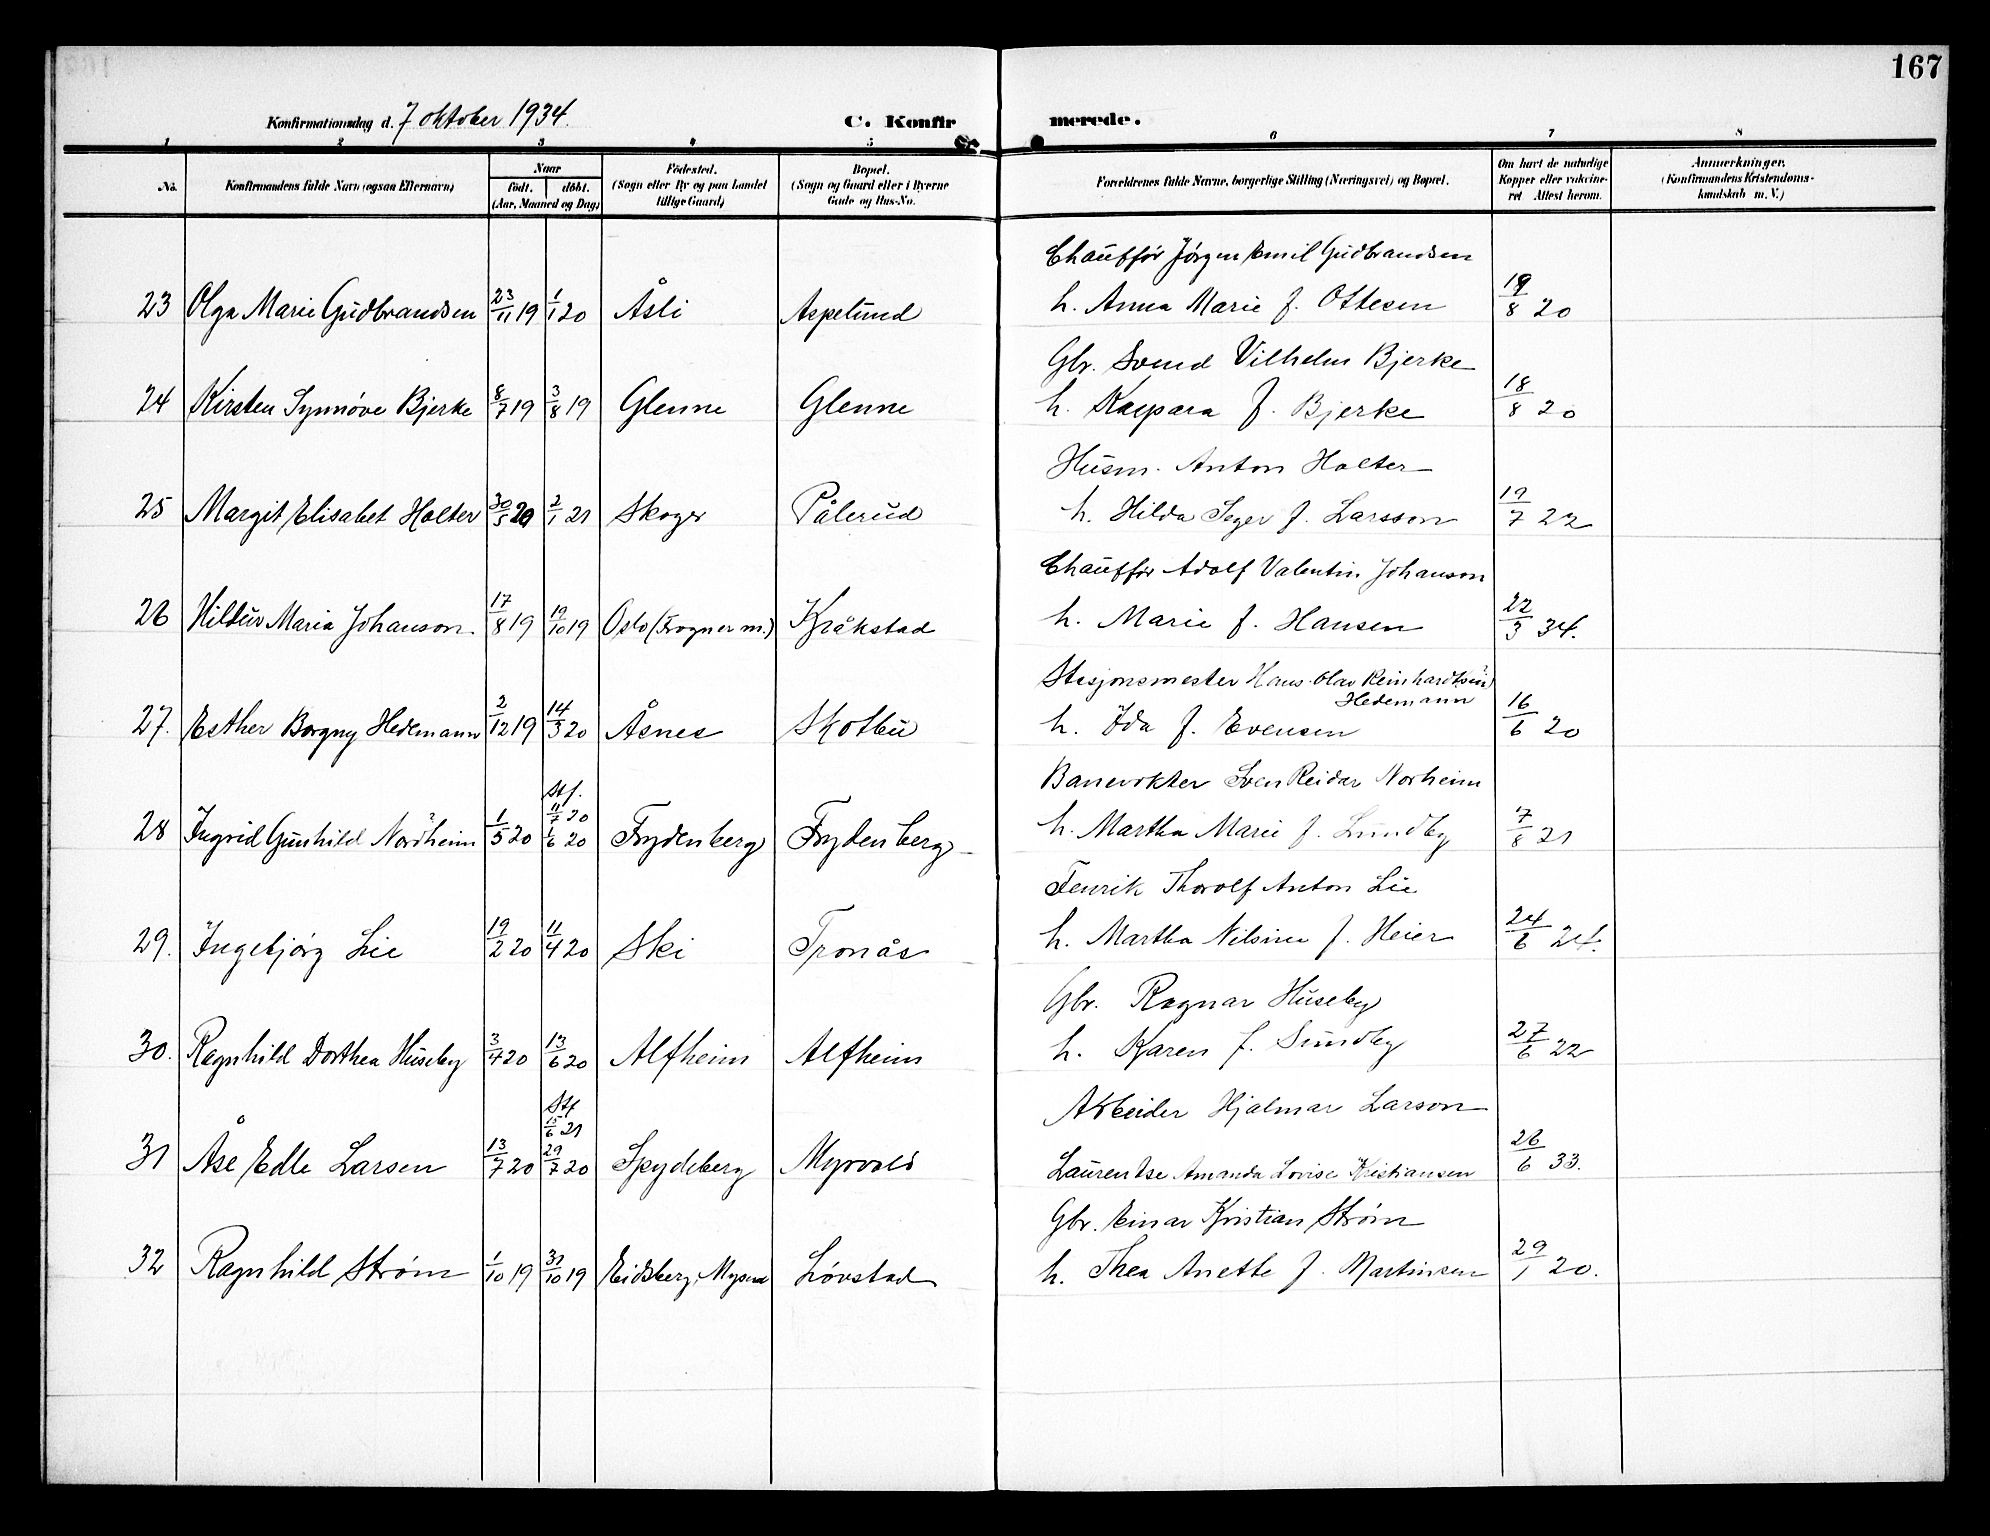 167
Konfirmationsdag d. 7 oktober 1934.
C. Konfir merede.
1 2 3 4 5 6 7 8
No. Konfirmandens fulde Navn (ogsaa Efternavn) Naar født. døbt. (Aar, Maaned og Dag) Fødested. (Sogn eller By og paa Landet tillige Gaard) Bopæl. (Sogn og Gaard eller i Byerne Gade og Hus-No. Forældrenes fulde Navne, borgerlige Stilling (Næringsvei) og Bopæl. Om havt de naturlige Kopper eller vaccineret Attest herom. Anmerkninger. (Konfirmandens Kristendomskundskab m. V.)
Chauffør Jørgen Emil Gudbrandsen
23 Olga Marie Gudbrandsen 23/11 19 1/1 20 Åsli Aspelund h. Anna Marie f. Ottesen 19/8 20
Gbr. Svend Vilhelm Bjerke
24 Kirsten Synnøve Bjerke 8/7 19 3/8 19 Glenne Glenne h. Kaspara f. Bjerke 18/8 20
Husm. Anton Holter
25 Margit Elisabet Holter 30/5 20 2/1 21 Skoger Pålerud h. Hilda Seger f. Larsson 19/7 22
Chauffør Adolf Valentin Johanson
26 Hildur Maria Johanson. 17/8 19 19/10 19 Oslo (Frogner m.) Kråkstad h. Marie f. Hansen 22/3 34.
Stasjonsmester Hans Olav Reinhardt
Hedemann
27. Esther Borgny Hedemann 2/12 19 14/3 20 Åsnes Skotbu h. Ida f. Evensen 16/6 20
Banevokter Sven Reidar Norheim
28 Ingrid Gunhild Nordheim 1/5 20 Stf. 11/7 20 1/6 20 Frydenberg Frydenberg h. Martha Marie f. Lundby 7/8 21
Fenrik Thorolf Anton Lie
29. Ingebjørg Lie 19/2 20 11/4 20 Ski Tronås h. Martha Nilsine f. Heier 24/6 24.
Gbr. Ragnar Huseby
30. Ragnhild Dorthea Huseby 3/4 20 13/6 20 Alfheim Alfheim h. Karen f. Sundby 27/6 22
Arbeider Hjalmar Larson
31 Åse Edle Larsen 13/7 20 Stf 15/6 21 29/7 20 Spydeberg Myrvold Laurentse Amanda Lovise Kristiansen 26/6 33.
Gbr. Einar Kristian Strøm
32 Ragnhild Strøm 1/10 19 31/10 19 Eidsberg, Mysen Løvstad h. Thea Anette f. Martinsen 29/1 20.